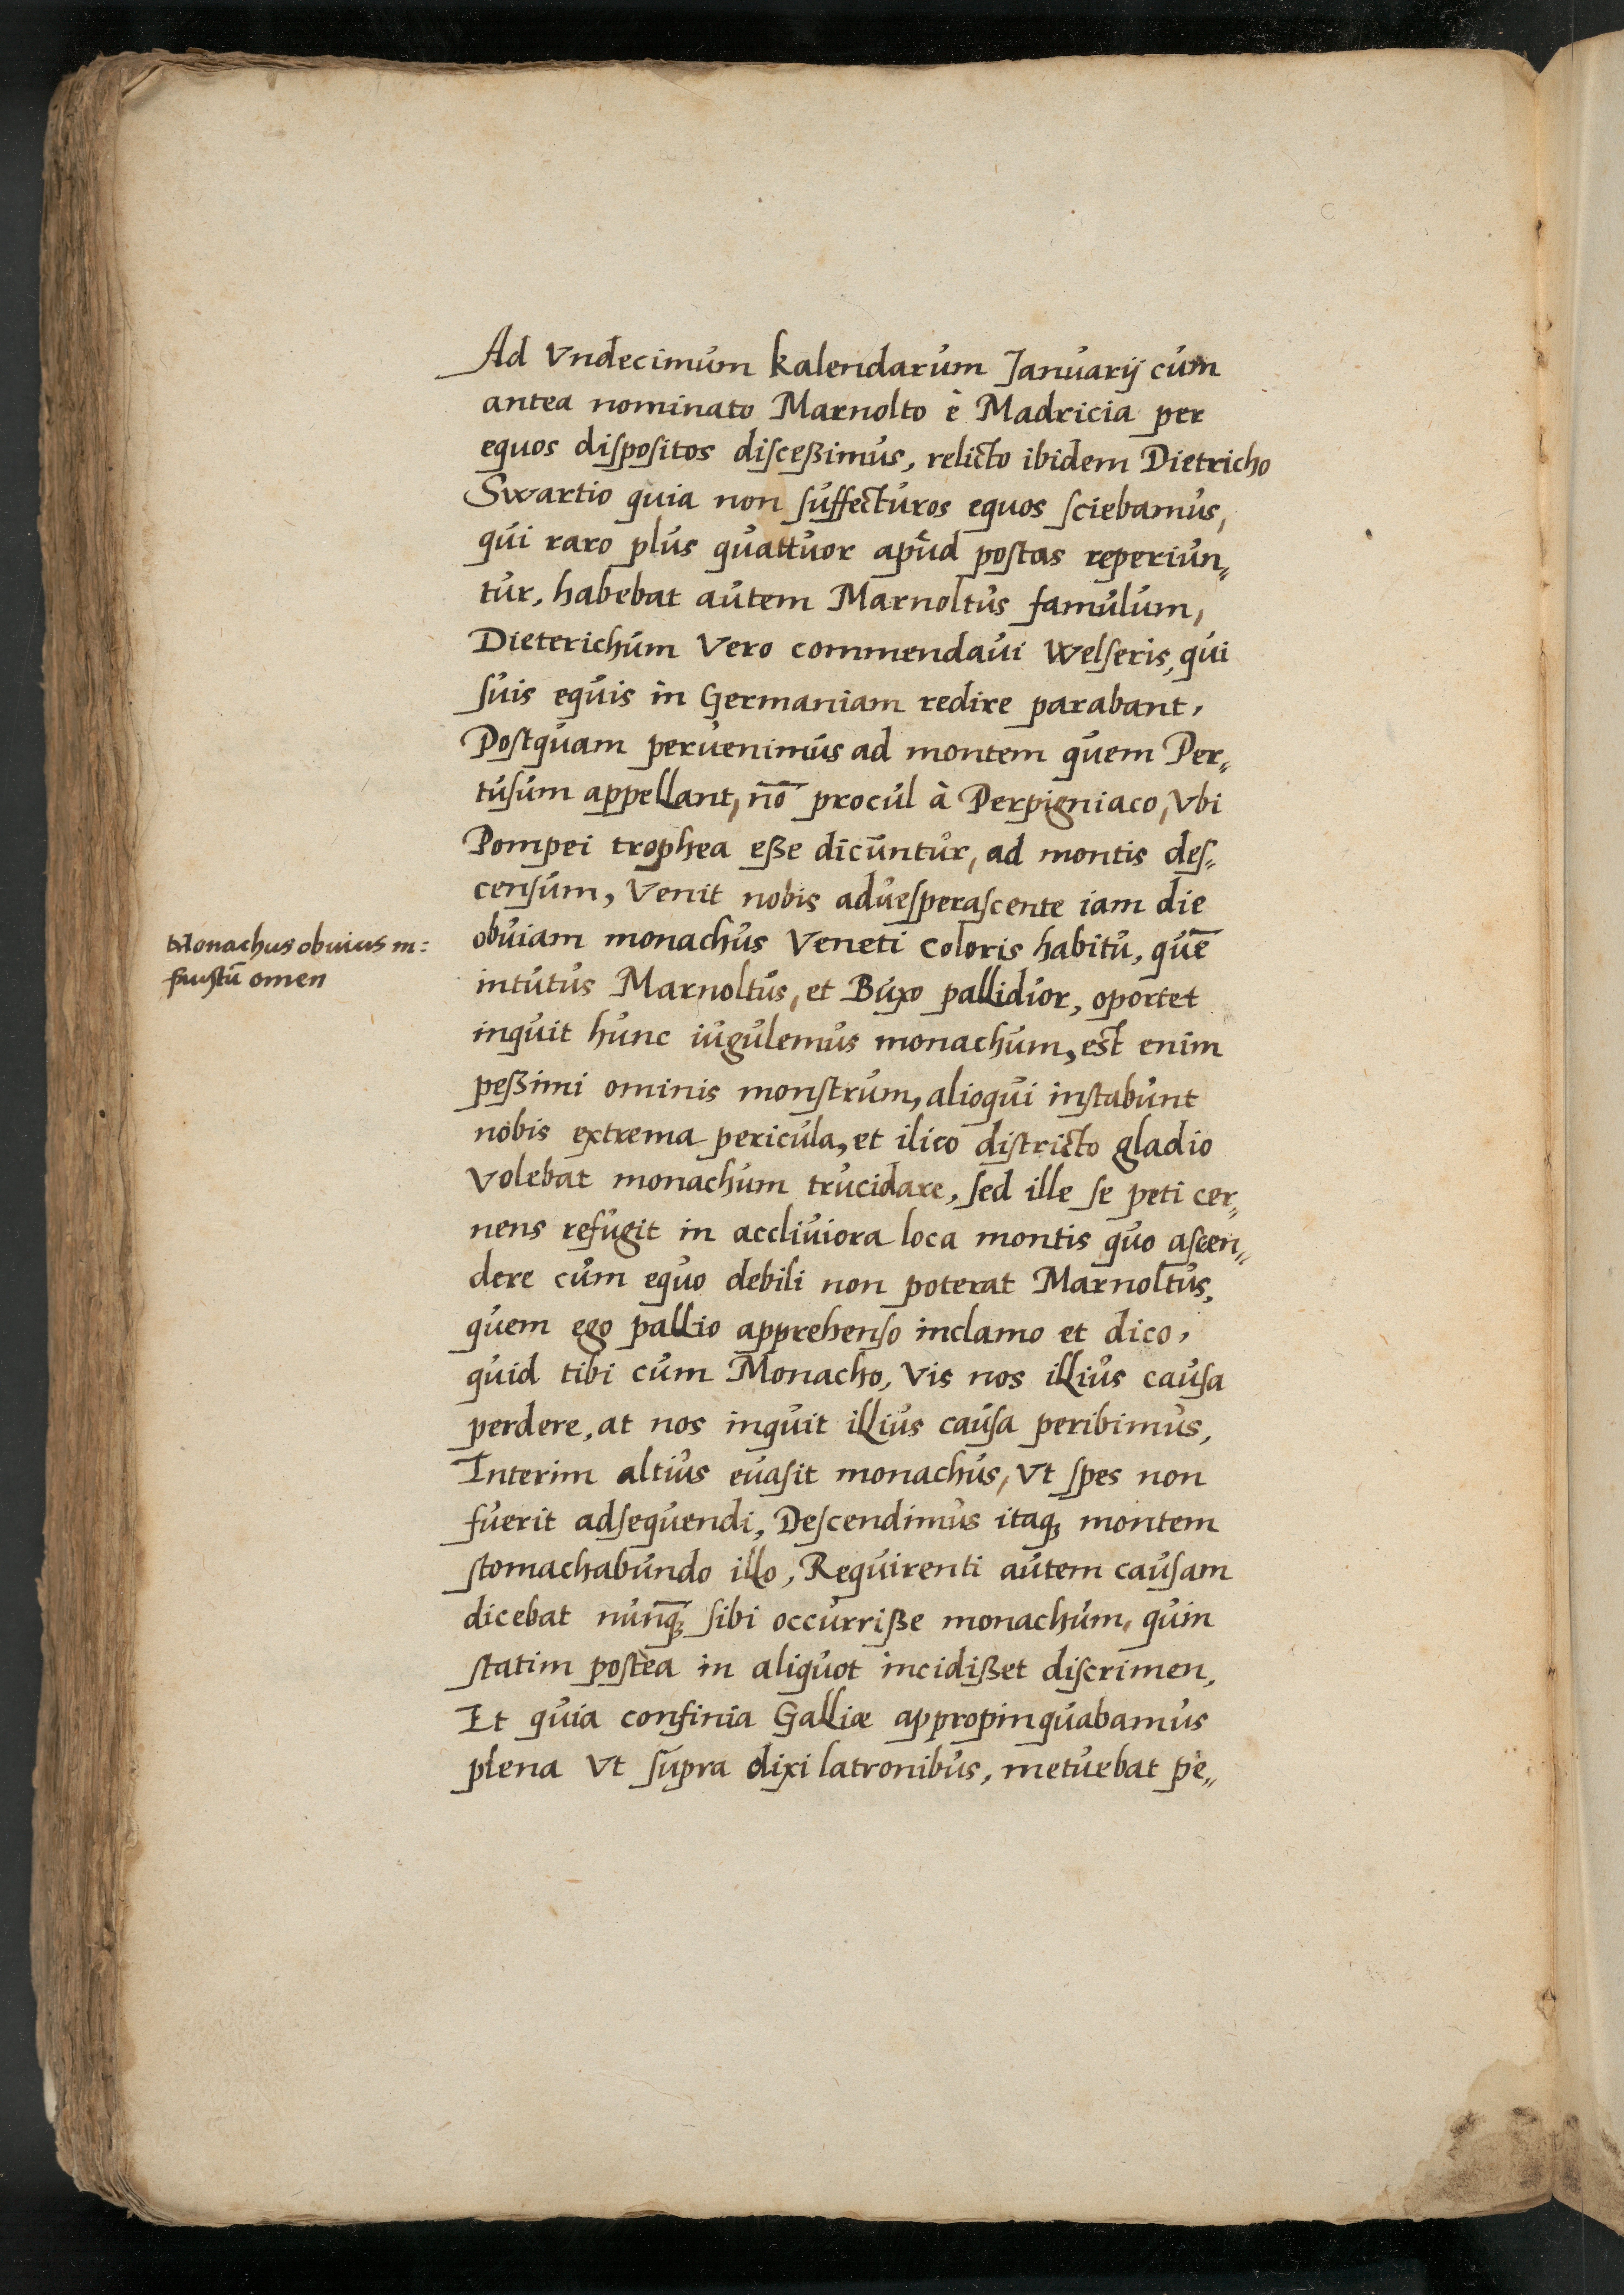 Ad Vndecimum kalendarum Januarij cum
antea nominato Marnolto è Madricia per
equos dispositos disceßimus, relicto ibidem Dietricho
Swartio quia non suffecturos equos sciebamus,
qui raro plus quattuor apud postas reperiun„
tur, habebat autem Marnoltus famulum,
Dieterichum Vero commendaui Welseris, qui
suis equis in Germaniam redire parabant,
Postquam peruenimus ad montem quem Per„
tusum appellant, nō procul à Perpigniaco, Vbi
Pompei trophea eße dicuntur, ad montis des„
censum, Venit nobis aduesperascente iam die
Monachus obuius in:
faustū omen
obuiam monachus Veneti coloris habitu, quē
intutus Marnoltus, et Buxo pallidior, oportet
inquit hunc iugulemus monachum, est enim
peßimi ominis monstrum, alioqui instabunt
nobis extrema pericula, et ilico districto gladio
Volebat monachum trucidare, sed ille se peti cer„
nens refugit in accliuiora loca montis quo ascen„
dere cum equo debili non poterat Marnoltus,
quem ego pallio apprehenso inclamo et dico,
quid tibi cum Monacho, Vis nos illius causa
perdere, at nos inquit illius causa peribimus,
Interim altius euasit monachus, Vt spes non
fuerit adsequendi, Descendimus itaq; montem
stomachabundo illo, Requirenti autem causam
dicebat nunq̄; sibi occurriße monachum, quin
statim postea in aliquot incidißet discrimen,
Et quia confinia Galliæ appropinquabamus
plena Vt supra dixi latronibus, metuebat pe„